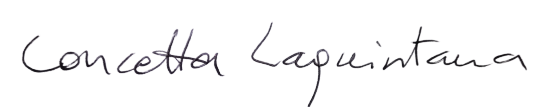 Concetta Laquintana